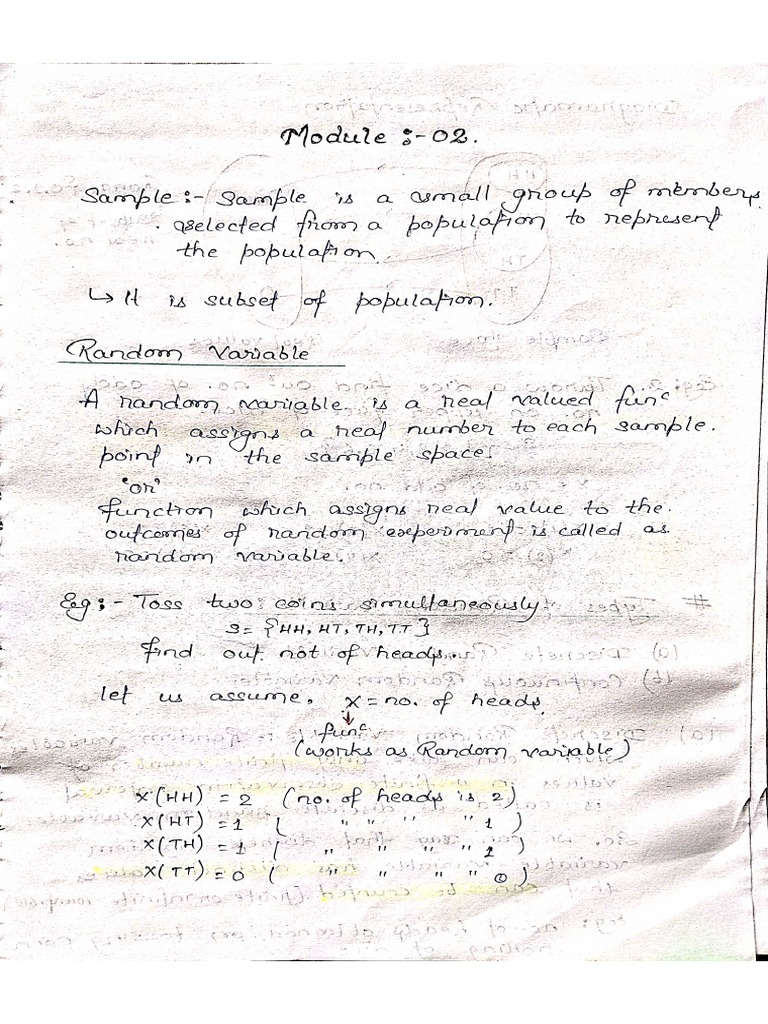 Module :- 02.
Sample :- Sample is a small group of members
selected from a population to represent
the population.
↳ It is subset of population.
Random Variable
A random variable is a real valued func
which assigns a real number to each sample.
point in the sample space.
'or'
function which assigns real value to the
outcomes of random experiment is called as
random variable.
Eg :- Toss two coins simultaneously
S = {HH, HT, TH, TT}
find out not of heads.
let us assume, X = no. of heads.
↓
func
(works as Random variable)
X(HH) = 2 (no. of heads is 2)
X(HT) = 1 ( " " " " 1 )
X(TH) = 1 ( " " " " 1 )
X(TT) = 0 ( " " " " 0 )